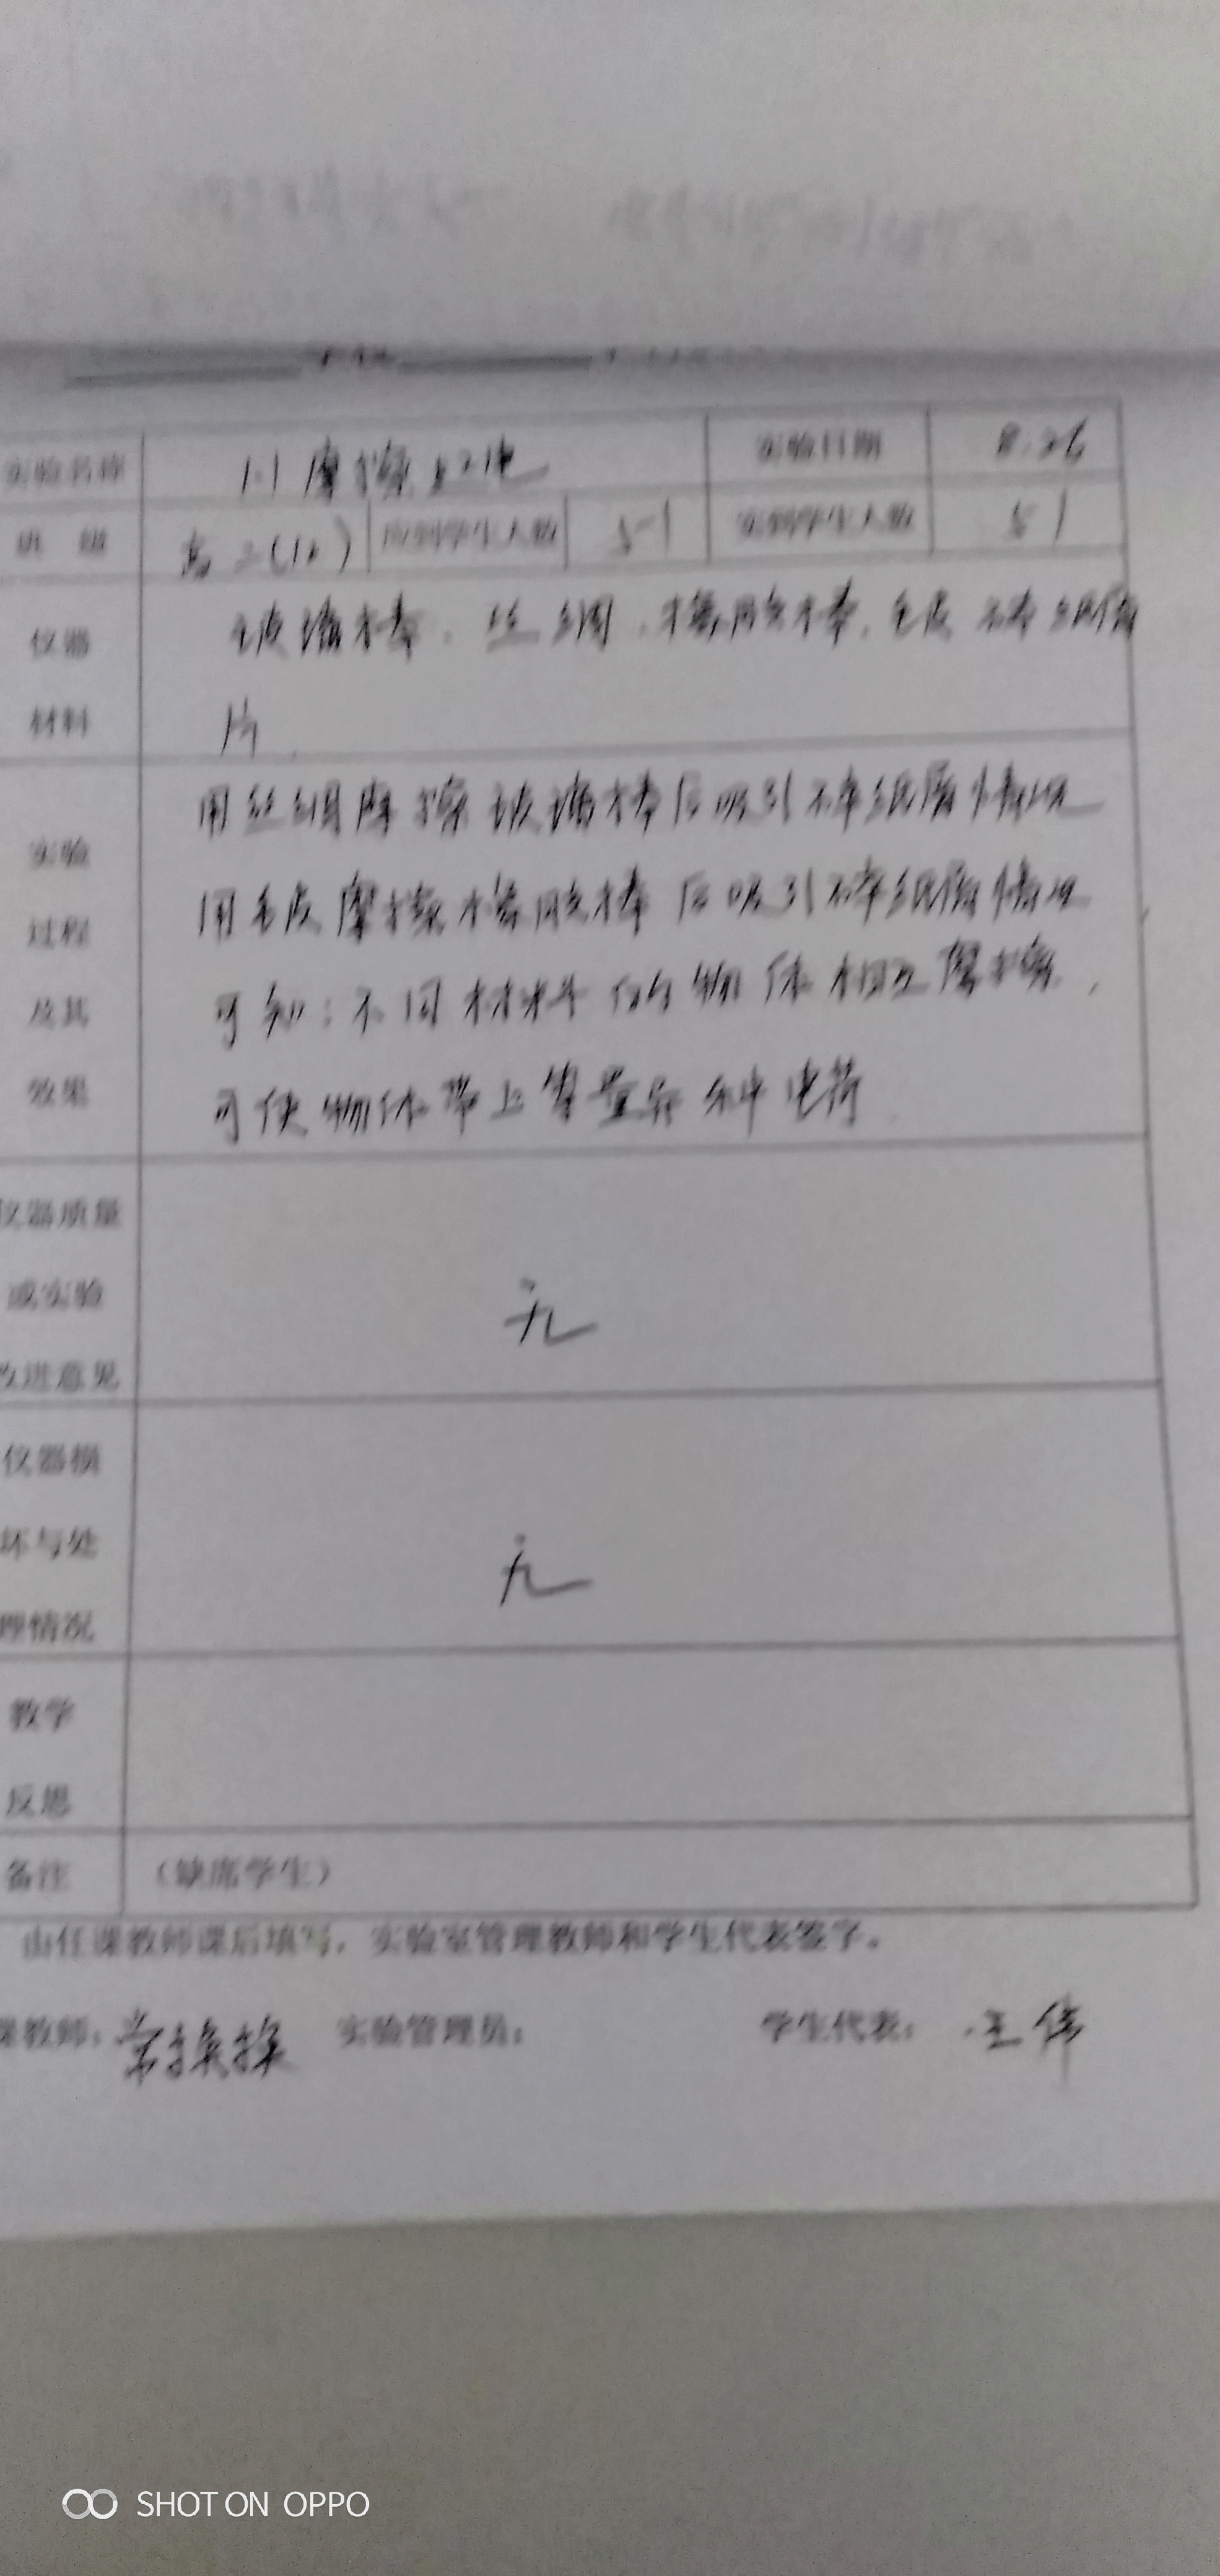 实验名称 1.1 摩擦起电 实验日期 8.26
班 级 高二(12) 应到学生人数 51 实到学生人数 51
仪器 玻璃棒、丝绸、橡胶棒、毛皮 碎纸屑
材料 片
用丝绸摩擦玻璃棒后吸引碎纸屑情况
实验
用毛皮摩擦橡胶棒后吸引碎纸屑情况
过程
及其 可知:不同材料的物体相互摩擦,
效果 可使物体带上等量异种电荷
仪器质量
或实验 无
改进意见
仪器损
坏与处 无
理情况
教学
反思
备注 (缺席学生)
由任课教师课后填写,实验室管理教师和学生代表签字。
课教师: 实验管理员: 学生代表: 王伟
SHOT ON OPPO